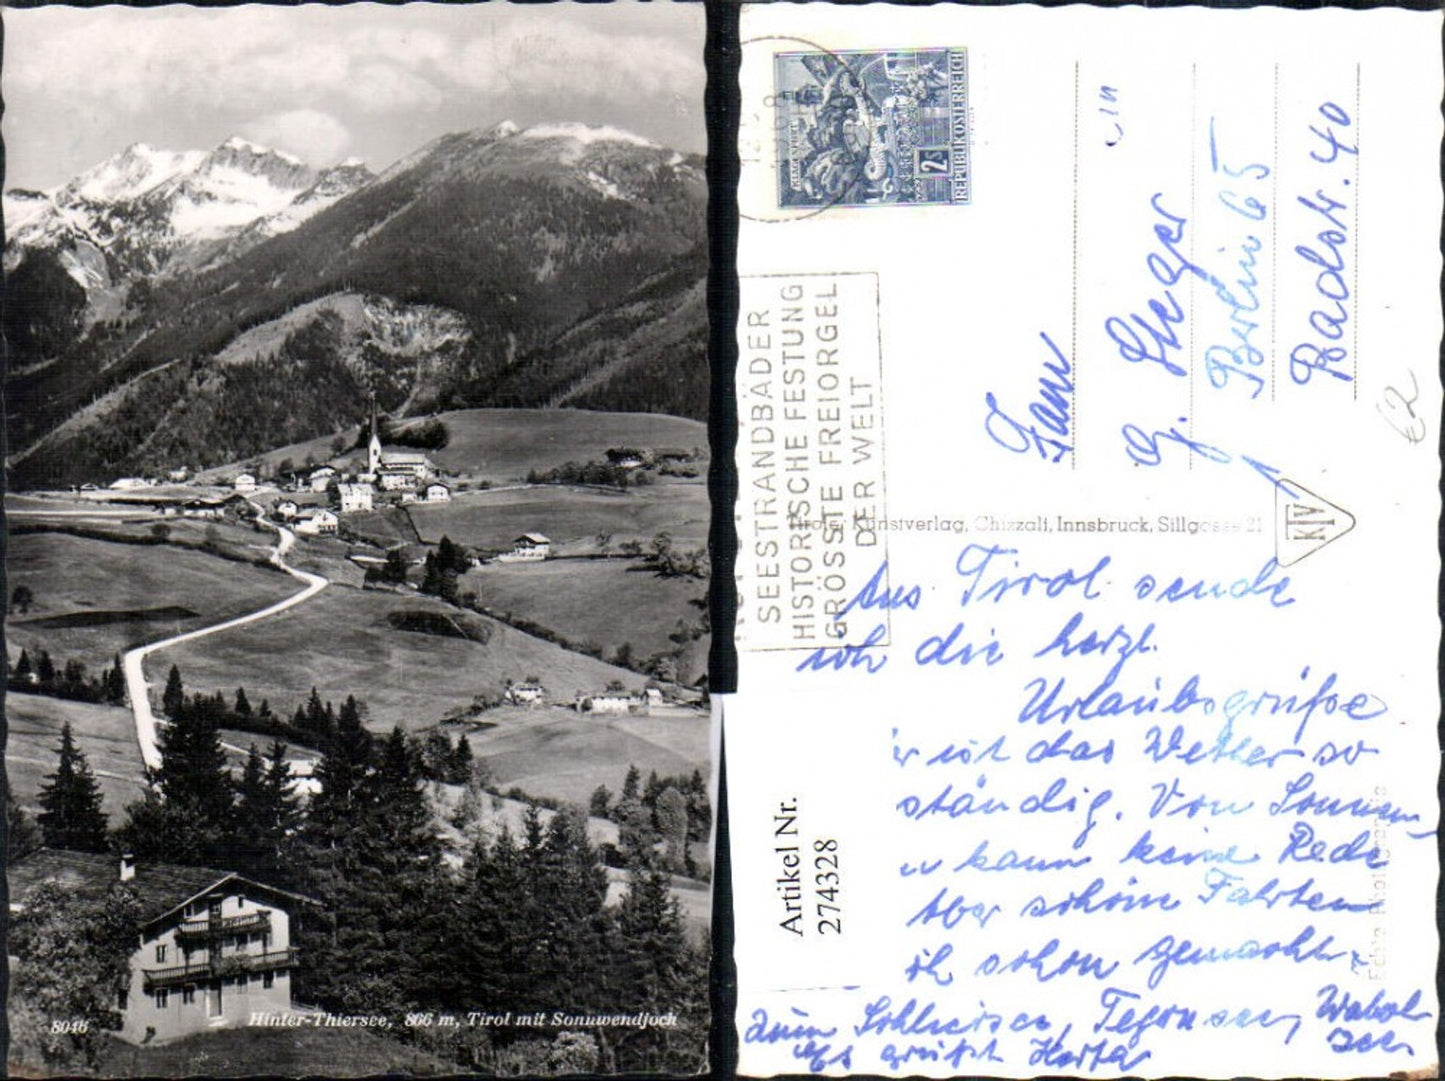 8046
Hinter-Thiersee, 866 m, Tirol mit Sonnwendjoch
KLAGENFURT
2s
REPUBLIK ÖSTERREICH
SEESTRANDBÄDER
HISTORISCHE FESTUNG
GRÖSSTE FREIORGEL
DER WELT
Fam
G. Steger
1 Berlin 65
Badstr. 40
€2
Tiroler Kunstverlag, Chizzali, Innsbruck, Sillgasse 21
KTV
Aus Tirol sende
ich die herzl.
Urlaubsgrüße
ist das Wetter so
ständig. Von Sonnen
kann keine Rede
Aber schöne Fahrten
ich schon gemacht
zum Schliersee, Tegernsee, Walchsee.
Es grüßt Herta
Artikel Nr.
274328